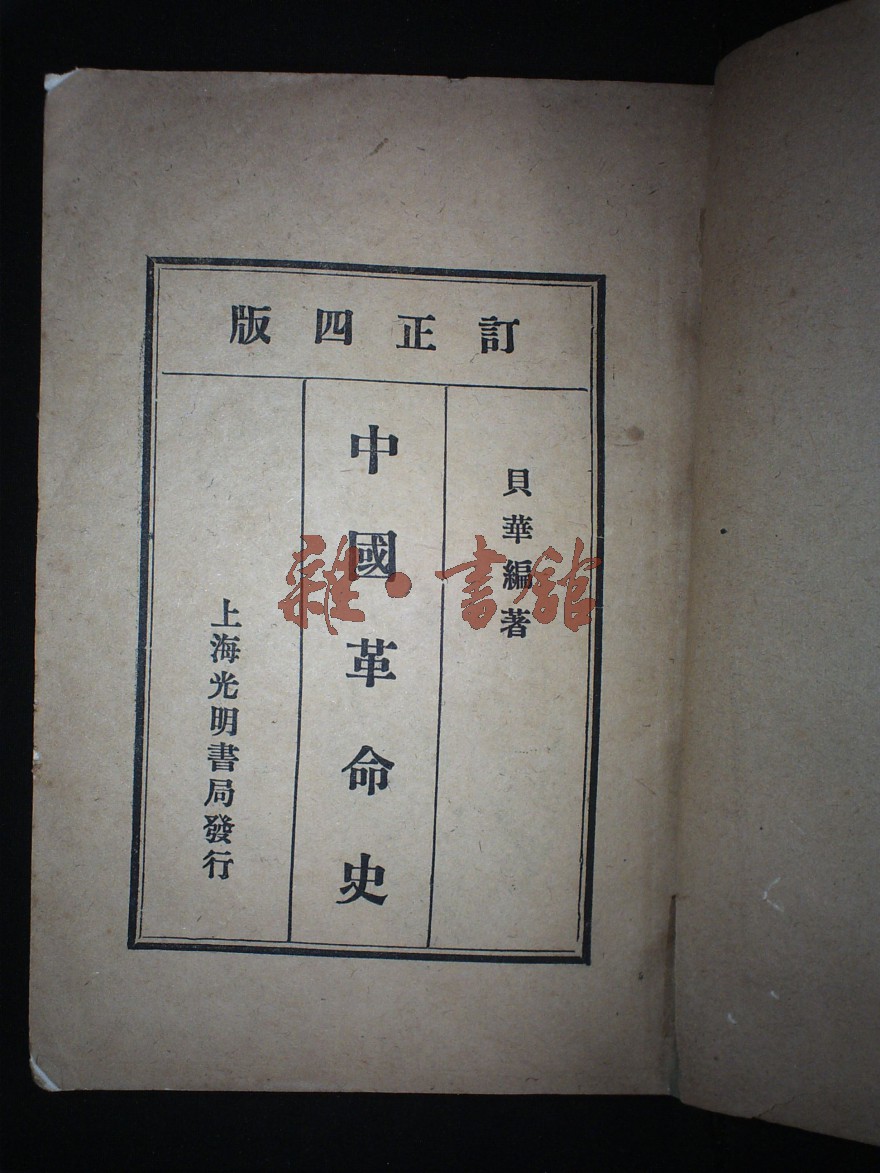 訂正四版
貝華編著
中國革命史
上海光明書局發行
雜·書館